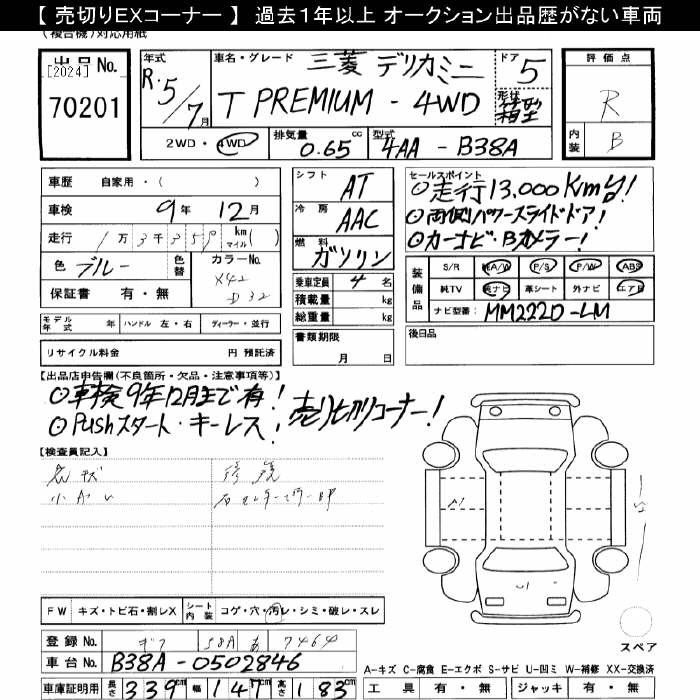 【 売切りEXコーナー 】 過去1年以上 オークション出品歴がない車両
(複合機)対応用紙
出品 No.
[2024]
70201
年式
R.5/7月
車名・グレード 三菱 デリカミニ
T PREMIUM - 4WD
ドア 5
形状 箱型
2WD・4WD
排気量 0.65 cc
型式 4AA - B38A
評価点
R
内装 B
車歴 自家用・( )
車検 9年 12月
走行 1万3千359 km マイル( )
色 ブルー
色替
カラーNo. X42
D32
保証書 有・無
モデル年式 年 ハンドル 左・右 ディーラー・並行
リサイクル料金 円 預託済
シフト AT
冷房 AAC
燃料 ガソリン
乗車定員 4 名
積載量 kg
総重量 kg
書類期限
月 日
セールスポイント
◎走行13,000Km台!
◎両側パワースライドドア!
◎カーナビ・Bカメラー!
装備品 S/R 純A/W P/S P/W ABS
純TV 純ナビ 革シート 外ナビ エアB
ナビ型番: MM222D-LM
後日品
【出品店申告欄(不良箇所・欠品・注意事項等)】
◎車検9年12月まで有!
◎Pushスタート・キーレス!
売り切りコーナー!
【検査員記入】
小カレ
A1
U1
FW キズ・トビ石・割レX シート内装 コゲ・穴・汚レ・シミ・破レ・スレ
スペア
登録 No. ギフ 58A あ 7464
車台 No. B38A-0502846
A-キズ C-腐食 E-エクボ S-サビ U-凹ミ W-補修 XX-交換済
車庫証明用 長さ 339cm 幅 147cm 高さ 183cm
工具 有・無 ジャッキ 有・無